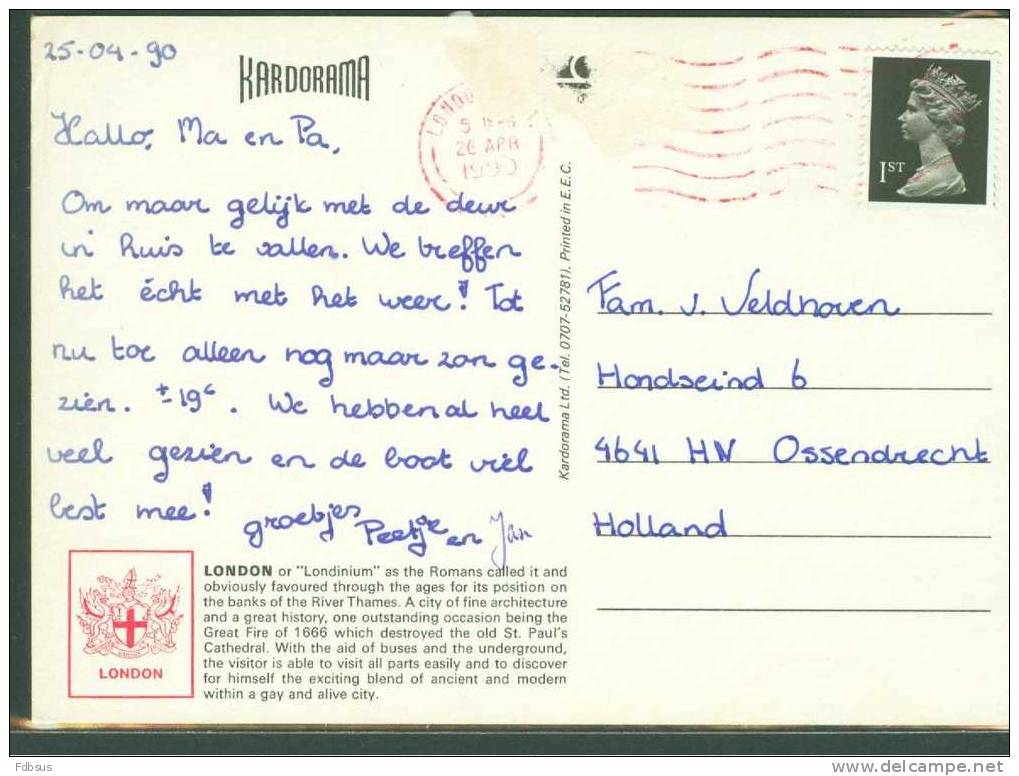 25-04-90
KARDORAMA
Hallo, Ma en Pa,
Om maar gelijk met de deur
in huis te vallen. We treffen
het écht met het weer! Tot
nu toe alleen nog maar zon ge-
zien. ± 19°. We hebben al heel
veel gezien en de boot viel
best mee! groetjes
Peetje en Jan
LONDON
26 APR
1990
1ST
Kardorama Ltd. (Tel. 0707-52781). Printed in E.E.C.
Fam. v. Veldhoven
Hondseind 6
4641 HV Ossendrecht
Holland
LONDON
LONDON or "Londinium" as the Romans called it and
obviously favoured through the ages for its position on
the banks of the River Thames. A city of fine architecture
and a great history, one outstanding occasion being the
Great Fire of 1666 which destroyed the old St. Paul's
Cathedral. With the aid of buses and the underground,
the visitor is able to visit all parts easily and to discover
for himself the exciting blend of ancient and modern
within a gay and alive city.
Fdbsus
delcampe.net